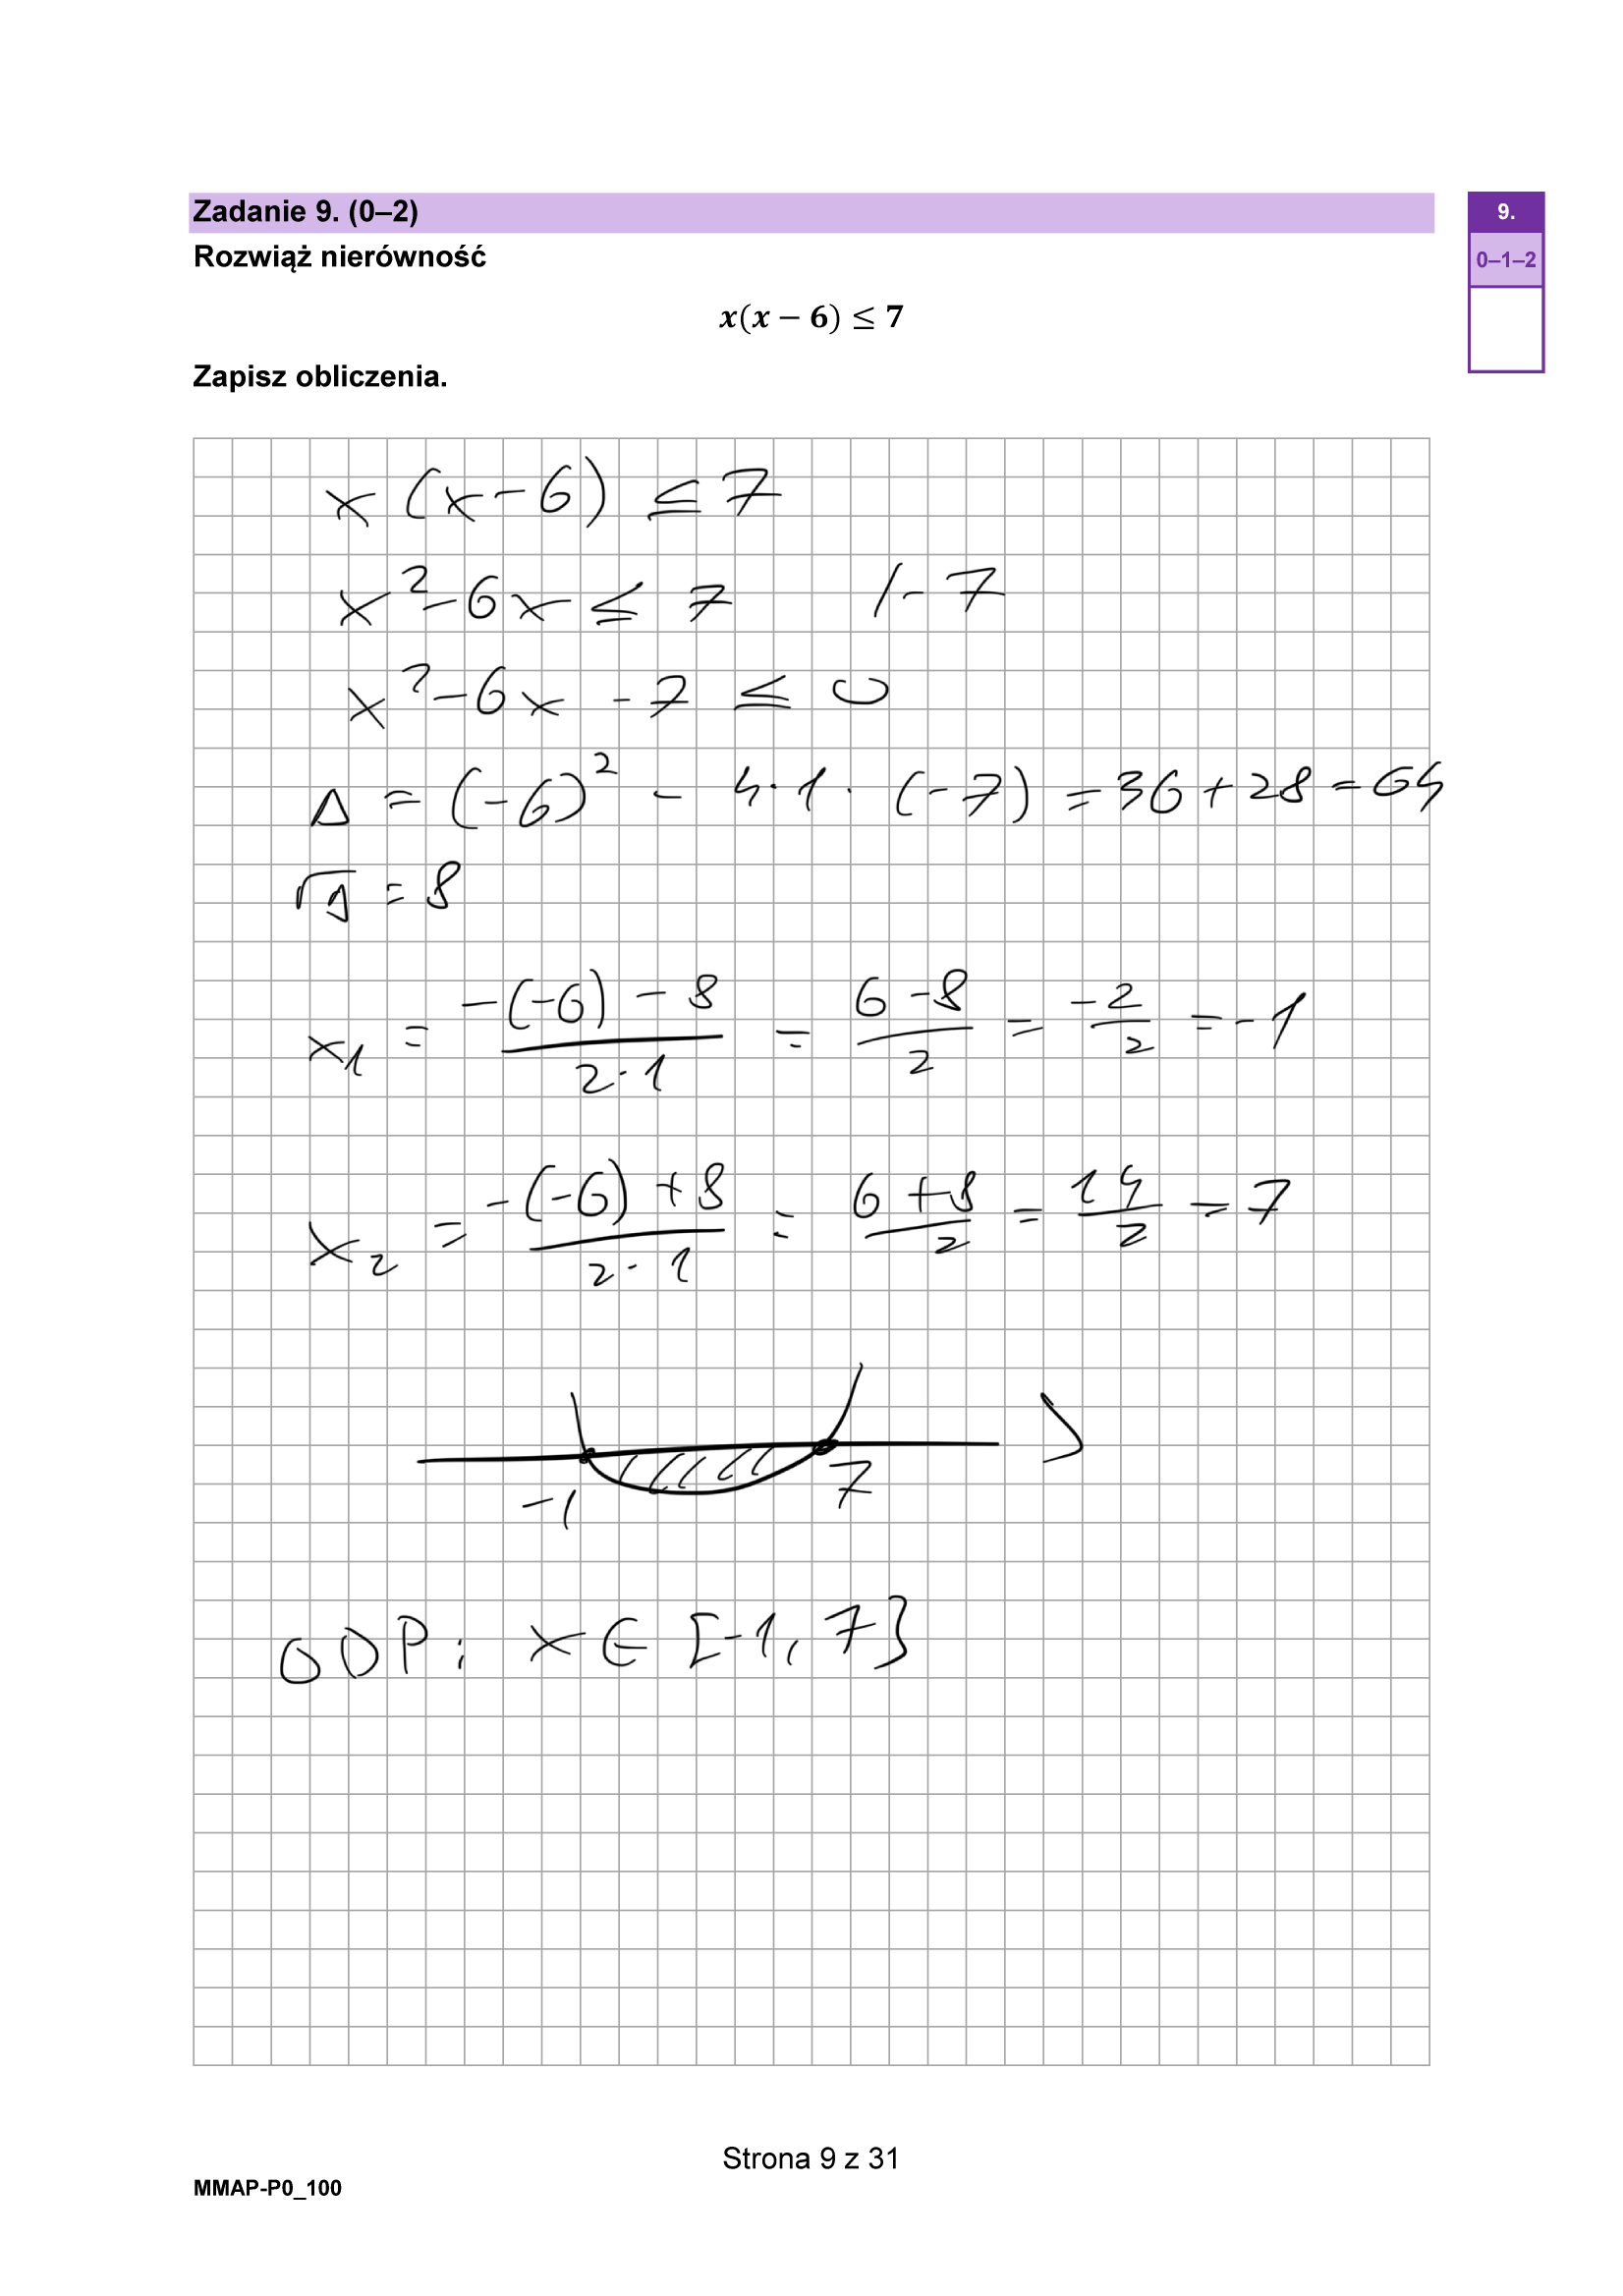 Zadanie 9. (0–2)
9.
0–1–2
Rozwiąż nierówność
x(x − 6) ≤ 7
Zapisz obliczenia.
x (x-6) ≤ 7
x²-6x ≤ 7 /-7
x²-6x -7 ≤ 0
Δ = (-6)² - 4·1·(-7) = 36+28 = 64
√Δ = 8
x₁ = (-(-6) - 8)/(2·1) = (6-8)/2 = -2/2 = -1
x₂ = (-(-6) + 8)/(2·1) = (6+8)/2 = 14/2 = 7
-1 7
ODP: x ∈ [-1, 7}
Strona 9 z 31
MMAP-P0_100